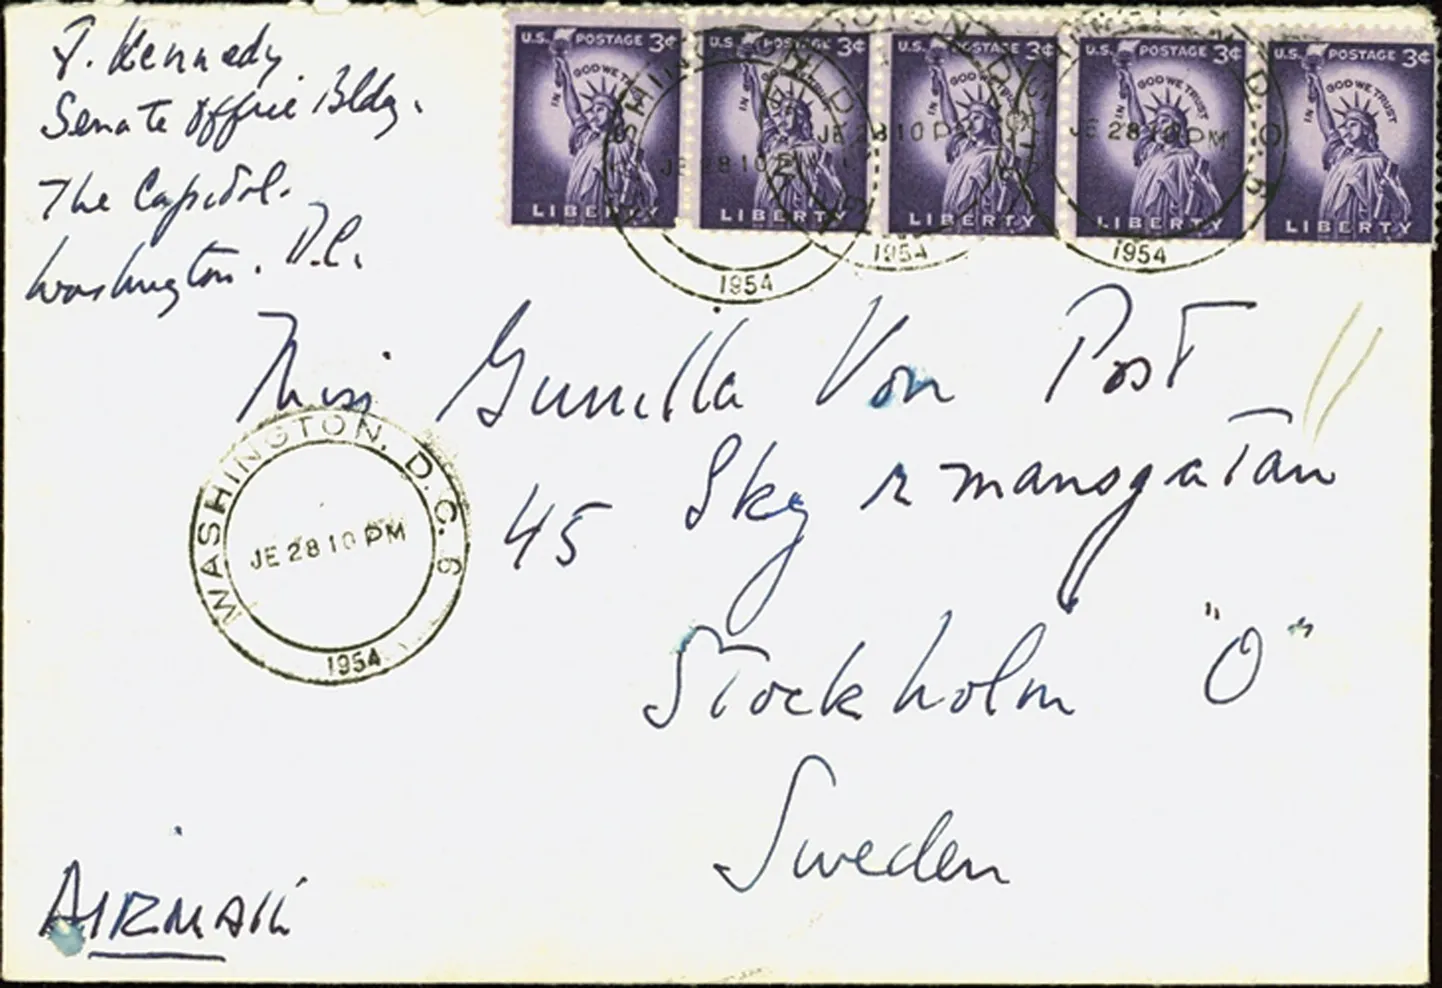 J. Kennedy
Senate Office Bldg.
The Capitol.
Washington. D.C.
U.S. POSTAGE 3¢
IN GOD WE TRUST
LIBERTY
U.S. POSTAGE 3¢
IN GOD WE TRUST
LIBERTY
U.S. POSTAGE 3¢
IN GOD WE TRUST
LIBERTY
U.S. POSTAGE 3¢
IN GOD WE TRUST
LIBERTY
U.S. POSTAGE 3¢
IN GOD WE TRUST
LIBERTY
JE 28 10 PM
1954
JE 28 10 PM
1954
JE 28 10 PM
1954
Miss Gunilla Von Post
45 Sky r mansgatan
Stockholm "O"
Sweden
WASHINGTON, D.C. 6
JE 28 10 PM
1954
AIRMAIL